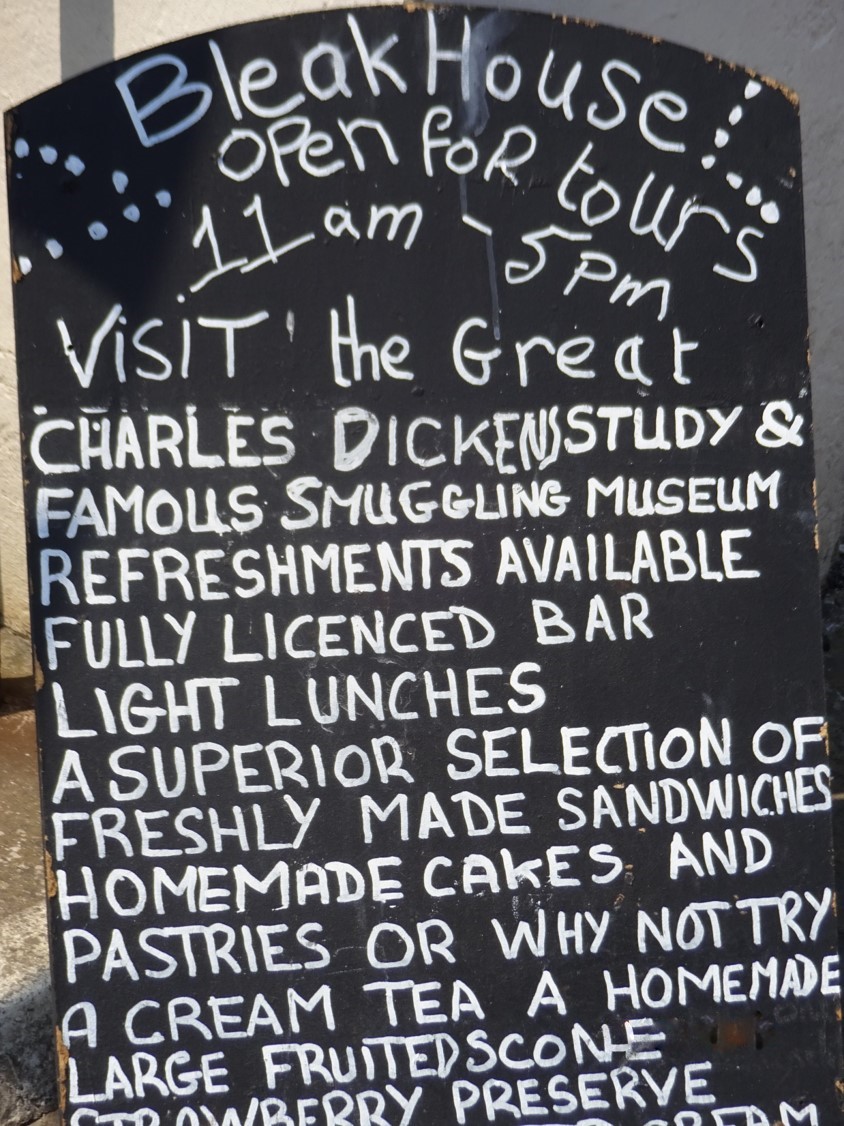 Bleak House!
OPen foR tours
11 am - 5 Pm
ViSiT the Great
CHARLES DICKENS STUDY &
FAMOUS SMUGGLING MUSEUM
REFRESHMENTS AVAILABLE
FULLY LICENCED BAR
LIGHT LUNCHES
A SUPERIOR SELECTION OF
FRESHLY MADE SANDWICHES
HOMEMADE CAKES AND
PASTRIES OR WHY NOT TRY
A CREAM TEA A HOMEMADE
LARGE FRUITED SCONE
STRAWBERRY PRESERVE
CREAM